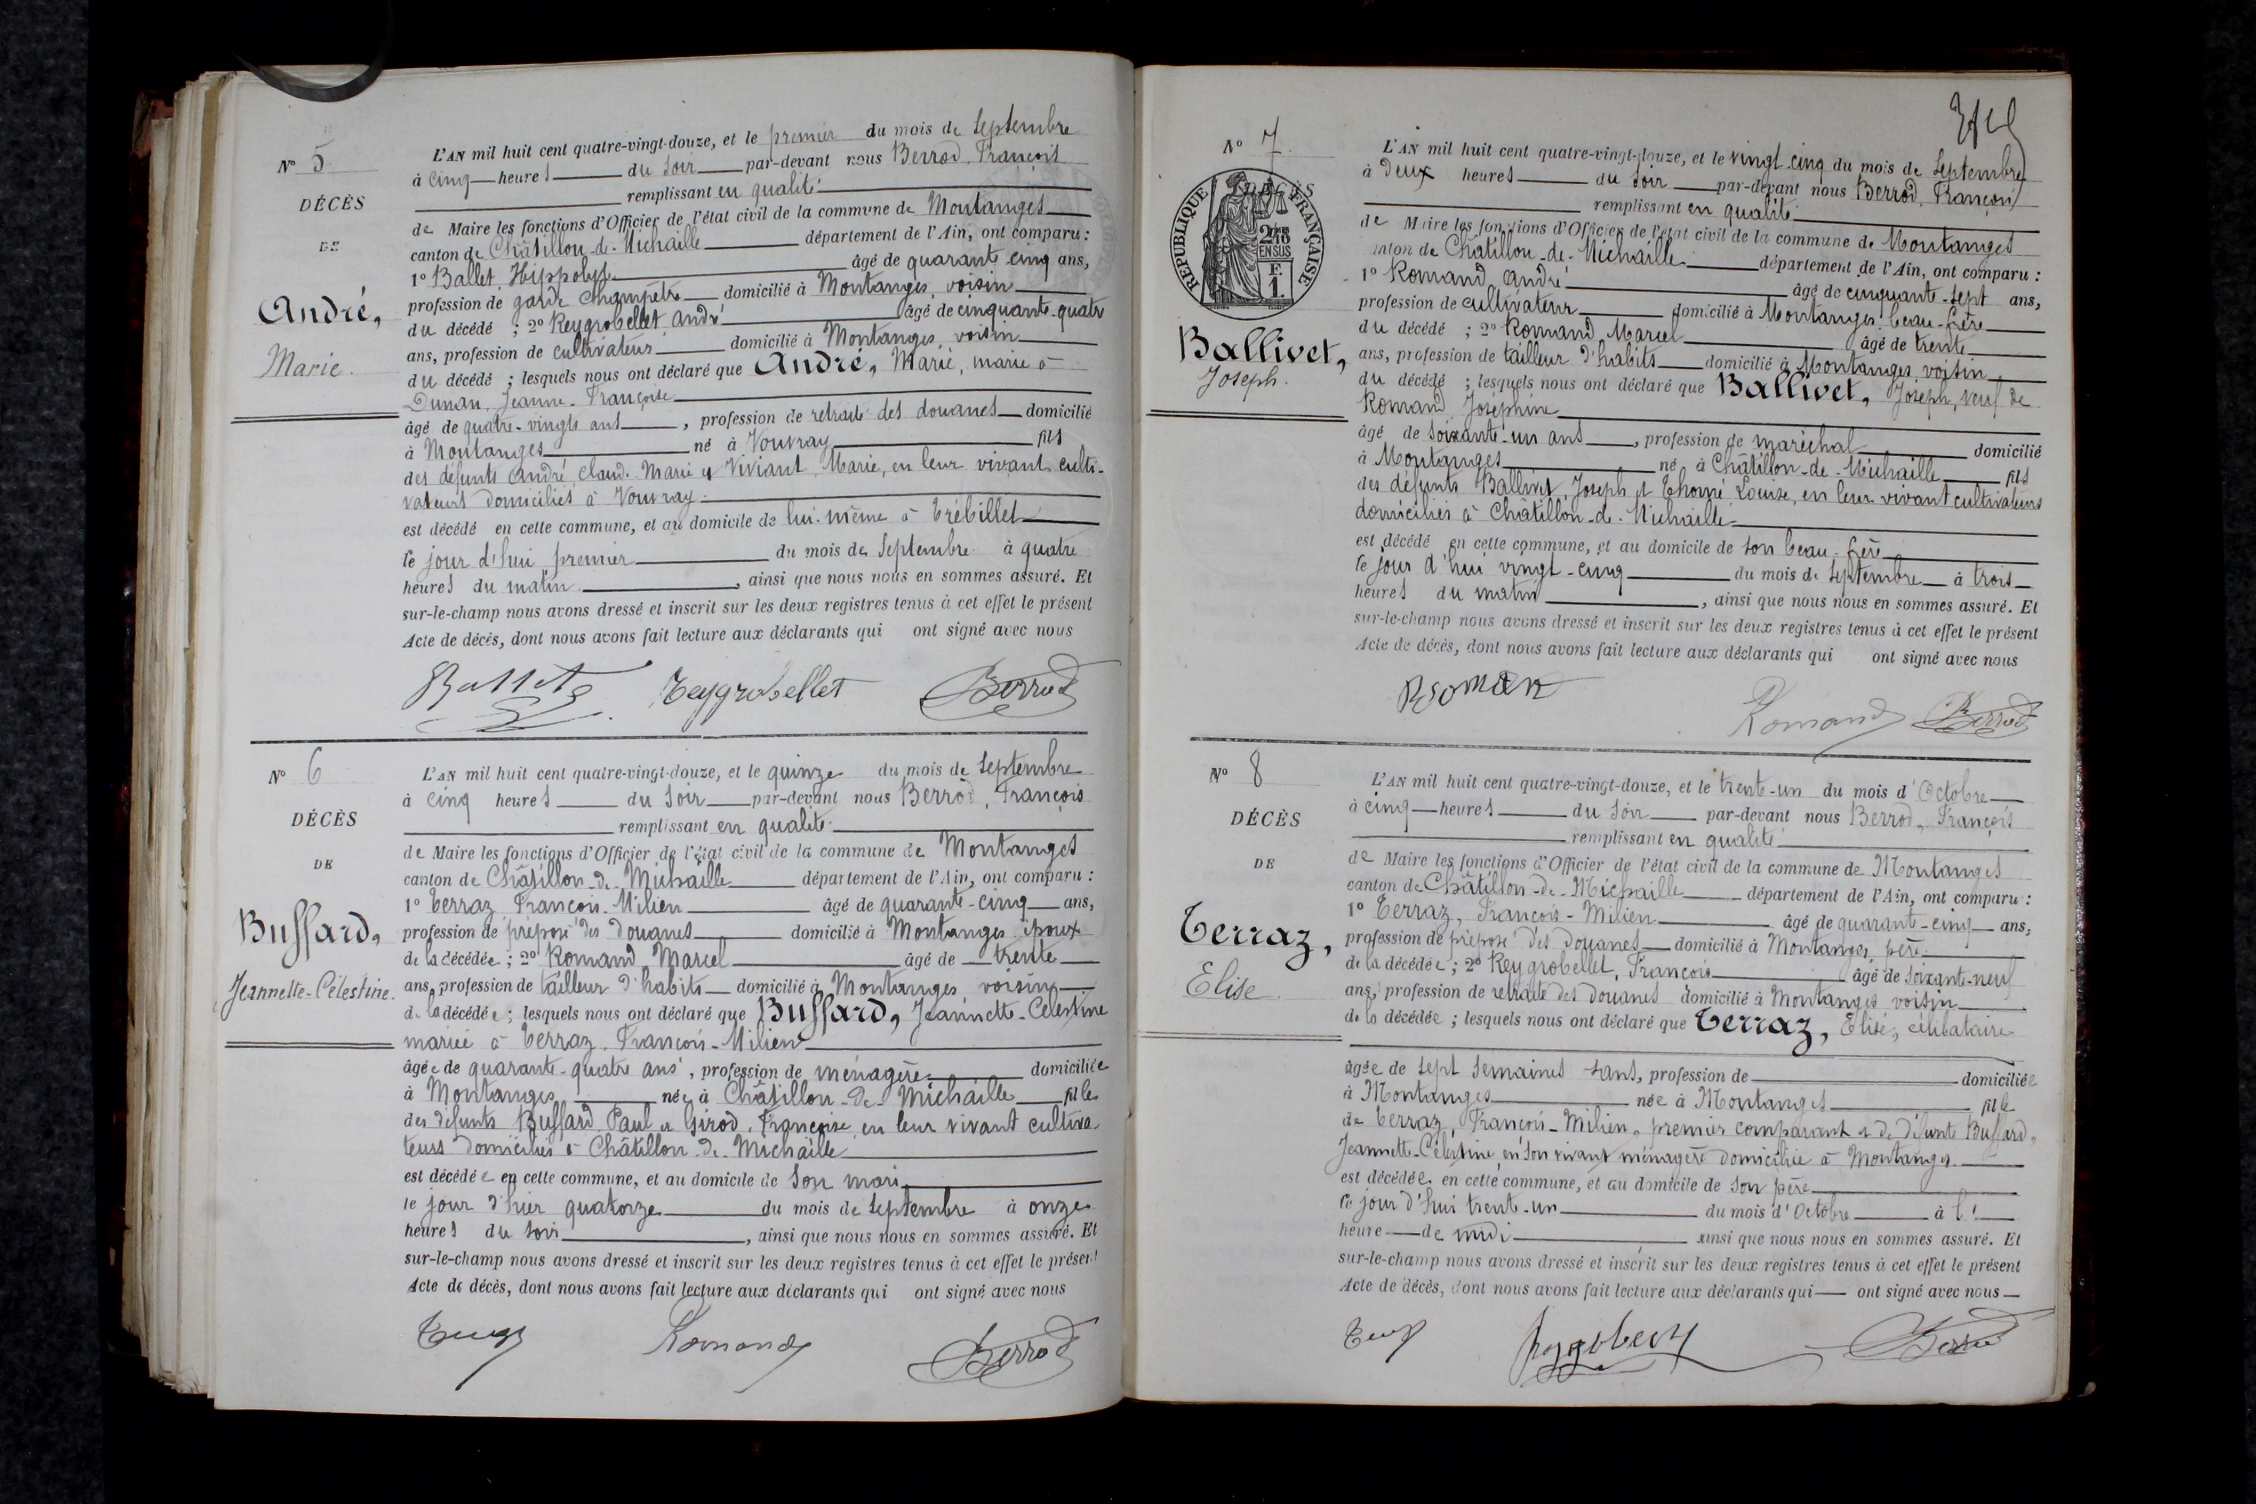 N° 5
DÉCÈS
DE
André,
Marie.
L'AN mil huit cent quatre-vingt-douze, et le premier du mois de Septembre
à cinq heures du soir par-devant nous Berrod, François
remplissant en qualité
de Maire les fonctions d'Officier de l'état civil de la commune de Montanges
canton de Châtillon-de-Michaille département de l'Ain, ont comparu :
1° Ballet, Hippolyte âgé de quarante cinq ans,
profession de garde champêtre domicilié à Montanges, voisin
du décédé ; 2° Reygrobellet, André âgé de cinquante-quatre
ans, profession de cultivateur domicilié à Montanges, voisin
du décédé ; lesquels nous ont déclaré que André, Marie, marié à
Dunan, Jeanne-Françoise
âgé de quatre-vingts ans, profession de retraité des douanes domicilié
à Montanges né à Vouvray fils
des défunts André, Claude-Marie et Viviant, Marie, en leur vivant culti-
vateurs domiciliés à Vouvray.
est décédé en cette commune, et au domicile de lui-même à Trébillet
le jour d'hui premier du mois de Septembre à quatre
heures du matin, ainsi que nous nous en sommes assuré. Et
sur-le-champ nous avons dressé et inscrit sur les deux registres tenus à cet effet le présent
Acte de décès, dont nous avons fait lecture aux déclarants qui ont signé avec nous
Ballet Reygrobellet Berrod
N° 6
DÉCÈS
DE
Buffard,
Jeannette-Célestine.
L'AN mil huit cent quatre-vingt-douze, et le quinze du mois de Septembre
à cinq heures du soir par-devant nous Berrod, François
remplissant en qualité
de Maire les fonctions d'Officier de l'état civil de la commune de Montanges
canton de Châtillon-de-Michaille département de l'Ain, ont comparu :
1° Terraz, François-Milien âgé de quarante-cinq ans,
profession de préposé des douanes domicilié à Montanges, époux
de la décédée ; 2° Romand, Marcel âgé de trente
ans, profession de tailleur d'habits domicilié à Montanges, voisin
de la décédée ; lesquels nous ont déclaré que Buffard, Jeannette-Célestine
mariée à Terraz, François-Milien
âgée de quarante-quatre ans, profession de ménagère domiciliée
à Montanges, née à Châtillon-de-Michaille fille
des défunts Buffard, Paul et Girod, Françoise, en leur vivant cultiva-
teurs domiciliés à Châtillon-de-Michaille
est décédée en cette commune, et au domicile de son mari
le jour d'hier quatorze du mois de Septembre à onze
heures du soir, ainsi que nous nous en sommes assuré. Et
sur-le-champ nous avons dressé et inscrit sur les deux registres tenus à cet effet le présent
Acte de décès, dont nous avons fait lecture aux déclarants qui ont signé avec nous
Romand Berrod
N° 7.
DÉCÈS
RÉPUBLIQUE FRANÇAISE
EN SUS
F.
1.
Ballivet,
Joseph.
L'AN mil huit cent quatre-vingt-douze, et le vingt-cinq du mois de Septembre
à deux heures du soir par-devant nous Berrod, François
remplissant en qualité
de Maire les fonctions d'Officier de l'état civil de la commune de Montanges
canton de Châtillon-de-Michaille département de l'Ain, ont comparu :
1° Romand, André âgé de cinquante-sept ans,
profession de cultivateur domicilié à Montanges, beau-frère
du décédé ; 2° Romand, Marcel âgé de trente
ans, profession de tailleur d'habits domicilié à Montanges, voisin
du décédé ; lesquels nous ont déclaré que Ballivet, Joseph, veuf de
Romand, Joséphine
âgé de soixante-un ans, profession de maréchal domicilié
à Montanges né à Châtillon-de-Michaille fils
des défunts Ballivet, Joseph et Louise, en leur vivant cultivateurs
domiciliés à Châtillon-de-Michaille
est décédé en cette commune, et au domicile de son beau-frère
le jour d'hui vingt-cinq du mois de Septembre à trois
heures du matin, ainsi que nous nous en sommes assuré. Et
sur-le-champ nous avons dressé et inscrit sur les deux registres tenus à cet effet le présent
Acte de décès, dont nous avons fait lecture aux déclarants qui ont signé avec nous
Romand Berrod
N° 8
DÉCÈS
DE
Terraz,
Elise
L'AN mil huit cent quatre-vingt-douze, et le trente-un du mois d'Octobre
à cinq heures du soir par-devant nous Berrod, François
remplissant en qualité
de Maire les fonctions d'Officier de l'état civil de la commune de Montanges
canton de Châtillon-de-Michaille département de l'Ain, ont comparu :
1° Terraz, François-Milien âgé de quarante-cinq ans,
profession de préposé des douanes domicilié à Montanges, père
de la décédée ; 2° Reygrobellet, François âgé de soixante-neuf
ans, profession de retraité des douanes domicilié à Montanges, voisin
de la décédée ; lesquels nous ont déclaré que Terraz, Elise, célibataire
âgée de sept semaines ans, profession de domiciliée
à Montanges née à Montanges fille
de Terraz, François-Milien, premier comparant et de défunte Buffard,
Jeannette-Célestine, en son vivant ménagère domiciliée à Montanges.
est décédée en cette commune, et au domicile de son père
le jour d'hui trente-un du mois d'Octobre à l'
heure de midi ainsi que nous nous en sommes assuré. Et
sur-le-champ nous avons dressé et inscrit sur les deux registres tenus à cet effet le présent
Acte de décès, dont nous avons fait lecture aux déclarants qui ont signé avec nous
Berrod